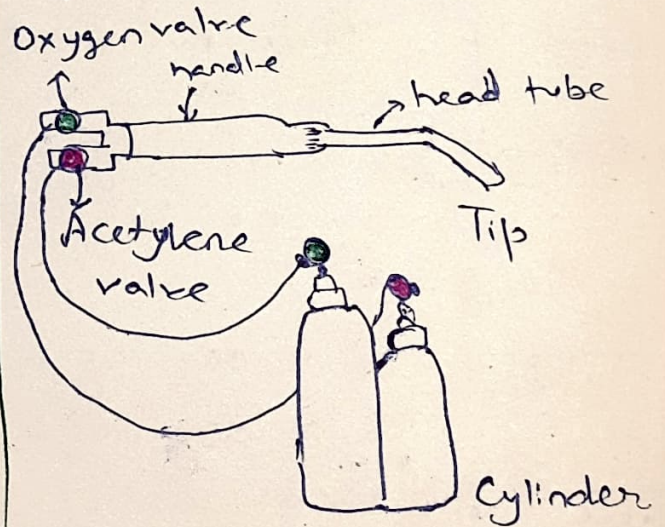 Oxygen valve
handle
head tube
Acetylene
valve
Tip
Cylinder